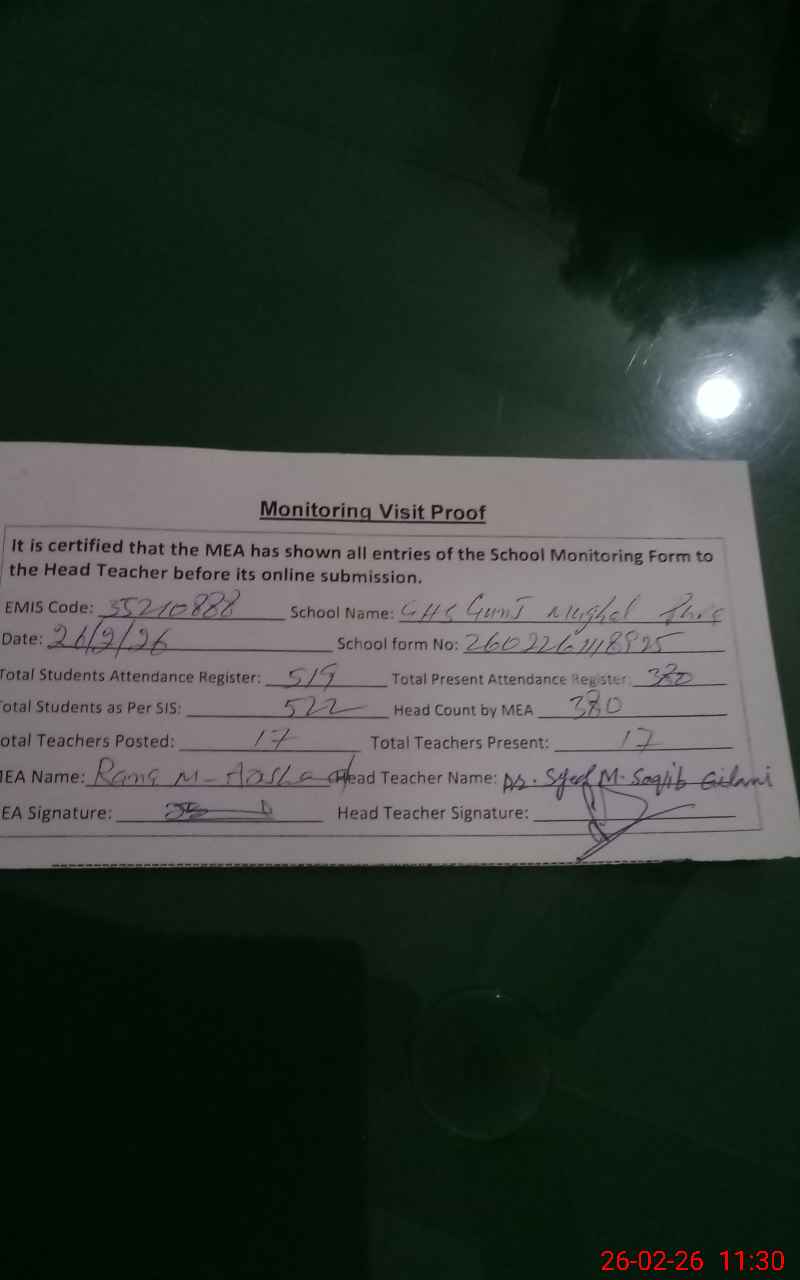 Monitoring Visit Proof
It is certified that the MEA has shown all entries of the School Monitoring Form to
the Head Teacher before its online submission.
EMIS Code: 35210888 School Name: GHS Gunj Mughal
Date: 26/2/26 School form No:
Total Students Attendance Register: 519 Total Present Attendance Register: 380
otal Students as Per SIS: 522 Head Count by MEA 380
otal Teachers Posted: 17 Total Teachers Present: 17
MEA Name: Rana M- Head Teacher Name: Dr. Syed M. Saqlib Gilani
EA Signature: Head Teacher Signature:
26-02-26 11:30